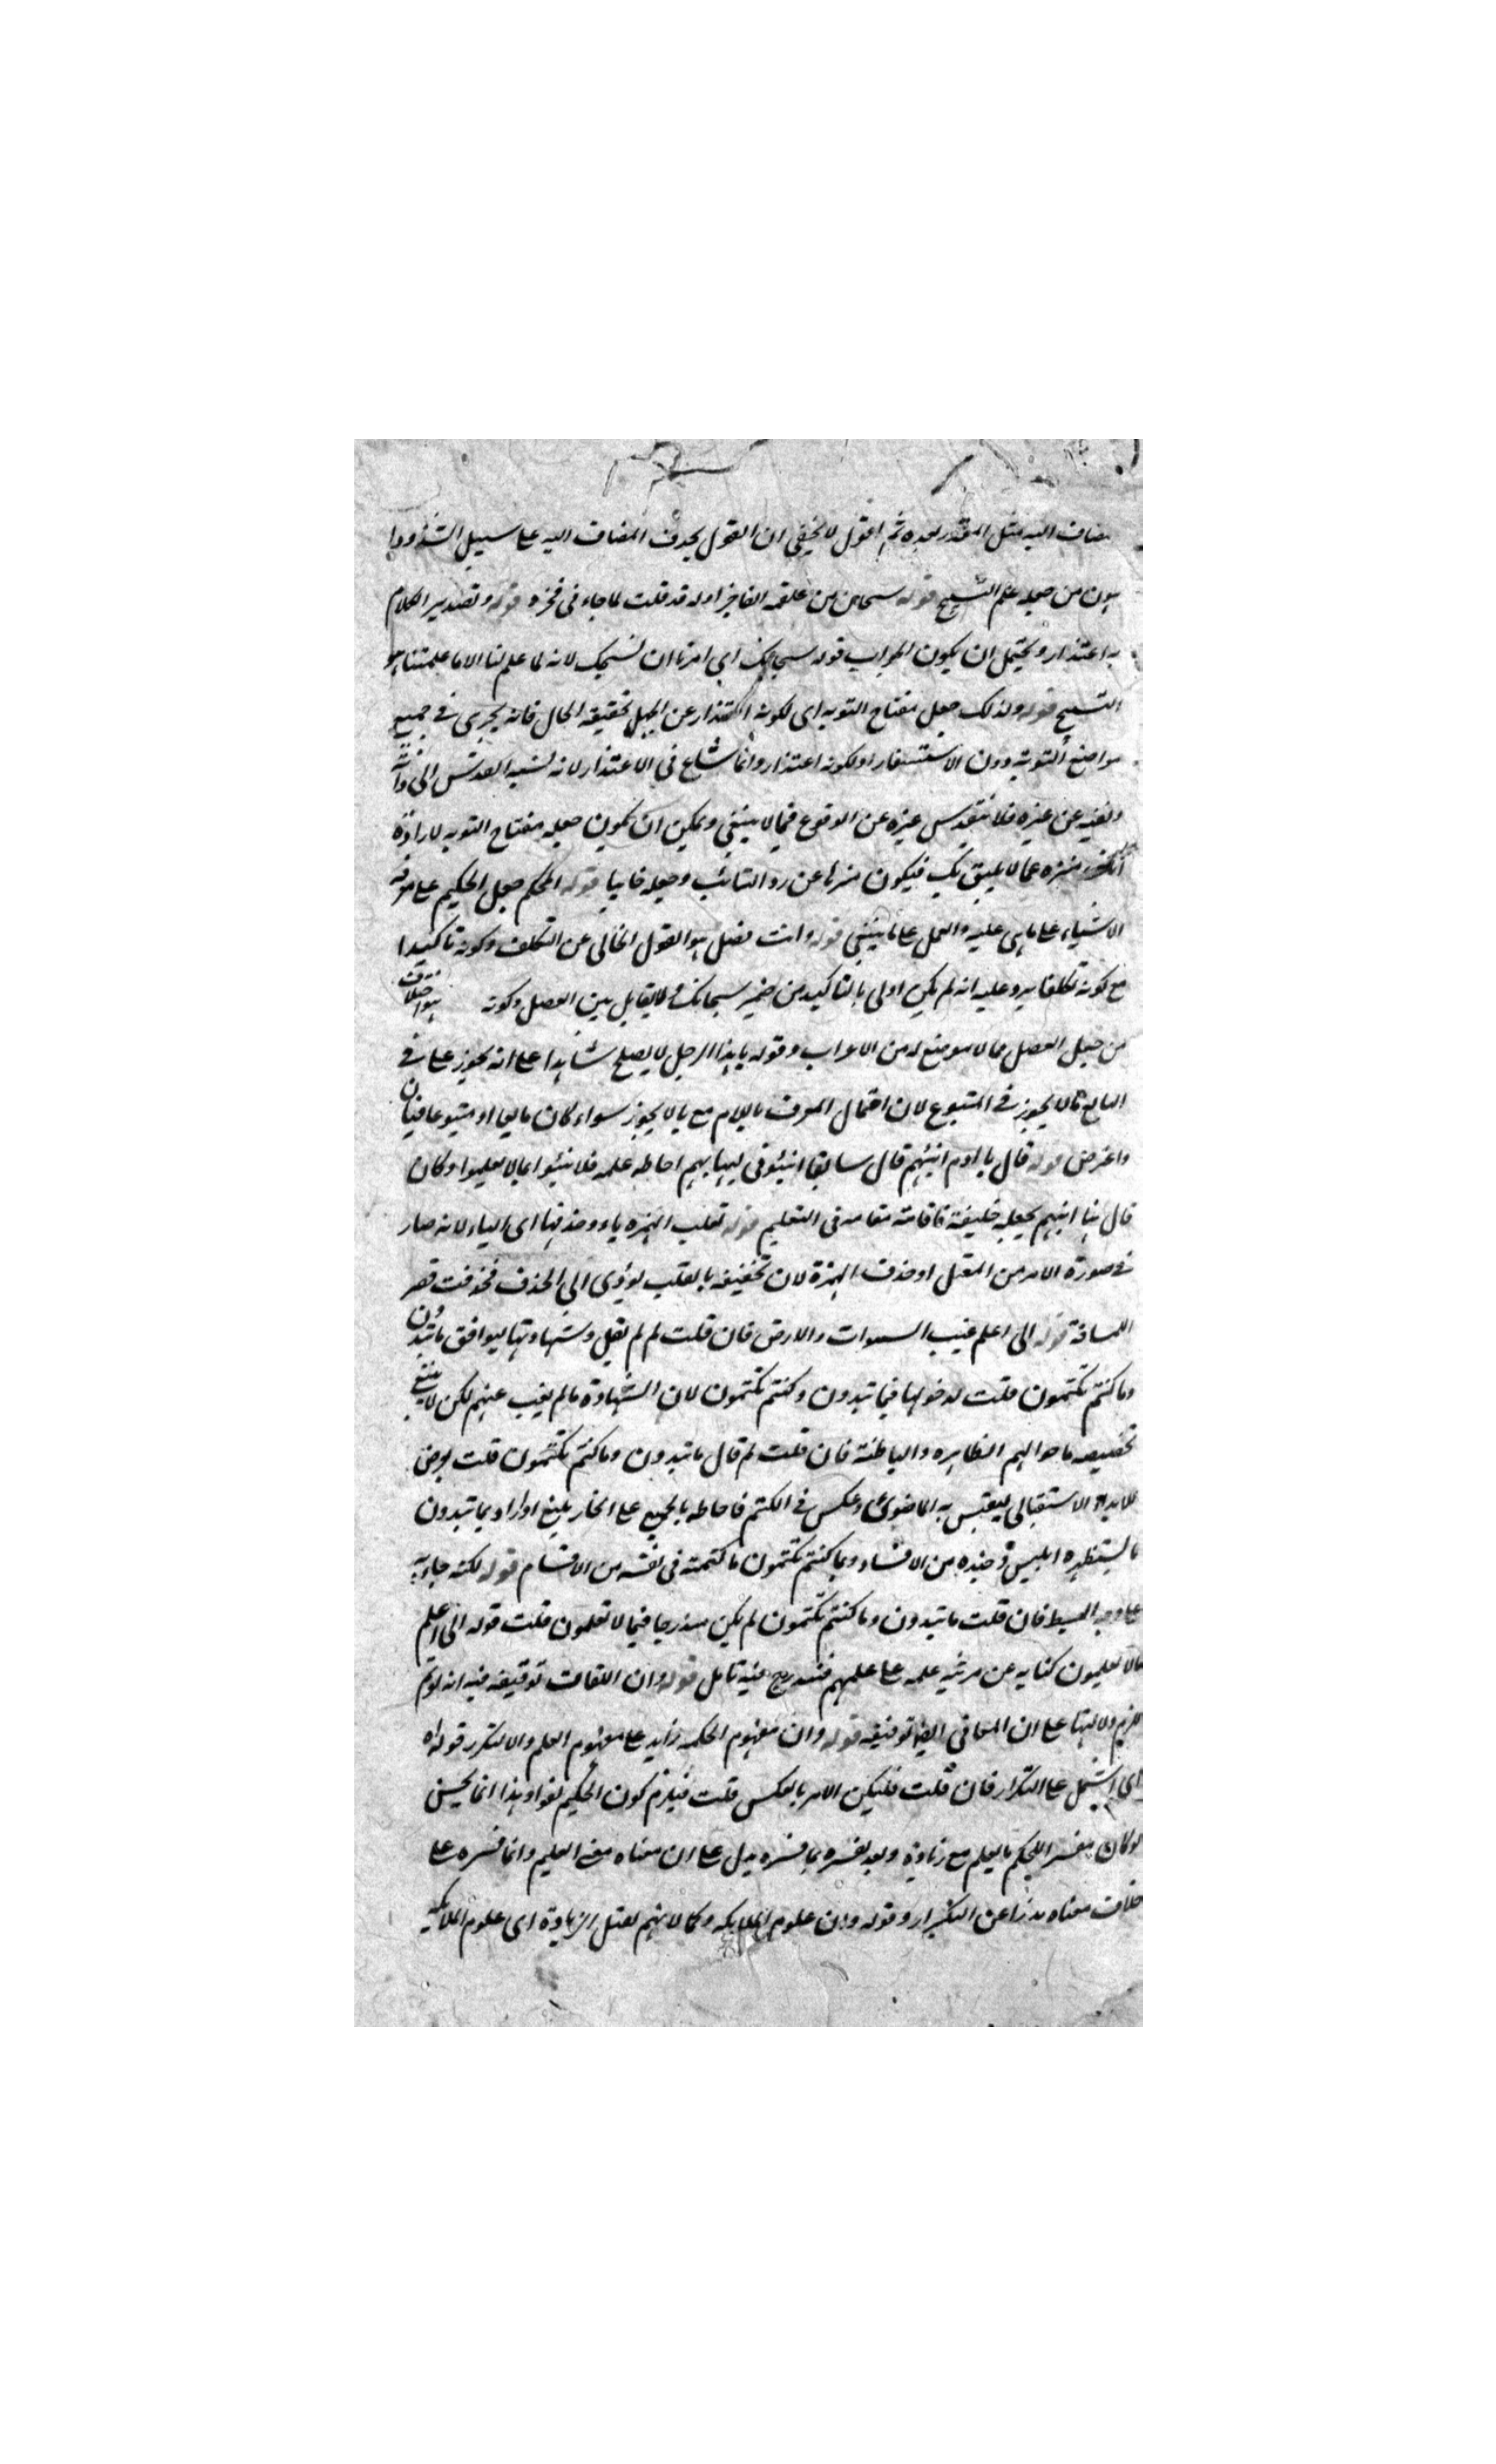 مضاف اليه مثل المقدر بعده ثم اقول لا يخفى ان القول بحذف المضاف اليه على سبيل الشذوذ
اهون من جعله علم التسبيح قوله سبحان من علقمة الفاخر اوله قد قلت لما جاءنى فخره قوله وتصدير الكلام
به اعتذار ويحتمل ان يكون الجواب قوله سبحانك اى امرنا ان نسبحك لانه لا علم لنا الا ما علمتنا هو
التسبيح قوله ولذلك جعل مفتاح التوبه اى لكونه اعتذار عن الجهل بحقيقة الحال فانه يجرى فى جميع
مواضع التوبة دون الاستغفار او لكونه اعتذار وانما شاع فى الاعتذار لانه نسبة التقدس الى ذاته
ونفيه عن غيره فلا يتقدس غيره عن الوقوع فيما لا ينبغى ويمكن ان يكون جعله مفتاح التوبه لارادة
انك منزه عما لا يليق بك فيكون منزها عن رد التائب وجعله خايبا قوله المحكم جعل الحكيم على معرفة
الاشياء على ما هى عليه والعمل على ما ينبغى قوله وانت فصل هو القول الخالى عن التكلف وكونه تاكيدا
مع كونه تكلفا يرد عليه انه لم يكن اولى بالتاكيد من ضمير سبحانك ولا يقابل بين الفصل وكونه
من جعل الفصل مما لا موضع له من الاعراب وقوله يا هذا الرجل لا يصلح شاهدا على انه يجوز على فى
التابع ما لا يجوز فى المتبوع لان احتمال المعرف باللام مع يا لا يجوز سواء كان تابعا او متبوعا
واعترض قوله قال يا ادم انبئهم قال سابقا انبئونى احاطة علمه فلا ينبئوا بما لا يعلموا وكان
قال هنا انبئهم بجعله خليفة فاقامته مقامه فى التعليم قوله بقلب الهمزه ياء وحذفها اى الياء لانه صار
فى صورة الامر من المعتل او حذف الهمزة لان تخفيفه بالقلب يؤدى الى الحذف فحذفت قصر
المسافة قوله انى اعلم غيب السموات والارض فان قلت لم لم يقل وشهادتها ليوافق ما تبدون
وما كنتم تكتمون قلت لدخولها فيما تبدون وكنتم تكتمون لان الشهادة ما لم يغب عنهم لكن لا ينبغى
تخصيصه باحوالهم الظاهره والباطنة فان قلت لم قال ما تبدون وما كنتم تكتمون قلت
للابداء الاستقبالى ليقتبس به الماضوى وعكس فى الكتم فاحاطه بالجميع على بليغ او اراد بما تبدون
ما يستظهره ابليس وجنده من الافساد وبما كنتم تكتمون ما كتمته فى نفسه من الاقسام قوله لكنه جاء به
على وجه ابسط فان قلت ما تبدون وما كنتم تكتمون لم يكن مندرجا فيما لا تعلمون قلت قوله انى اعلم
ما لا تعلمون كنايه عن مزيه علمه على علمهم فتندرج فيه تامل قوله وان اللغات توقيفه فيه انه لو تم
لزم دلالتها على ان المعانى ايضا توقيفيه قوله وان مفهوم الحكمة زايد على مفهوم العلم والا لتكرر قوله
اى اشتمل على التكرار فان قلت فليكن الامر بالعكس قلت فيلزم كون الحكيم لغوا وهذا انما يحسن
لو كان مفسر الحكيم بالعلم مع زيادة وبعد تفسره بما فسره يدل على ان معناه معنى العليم وانما فسره على
خلاف معناه حذرا عن التكرار وقوله وان علوم الملايكه وكمالاتهم تقبل الزيادة اى علوم الملايكه